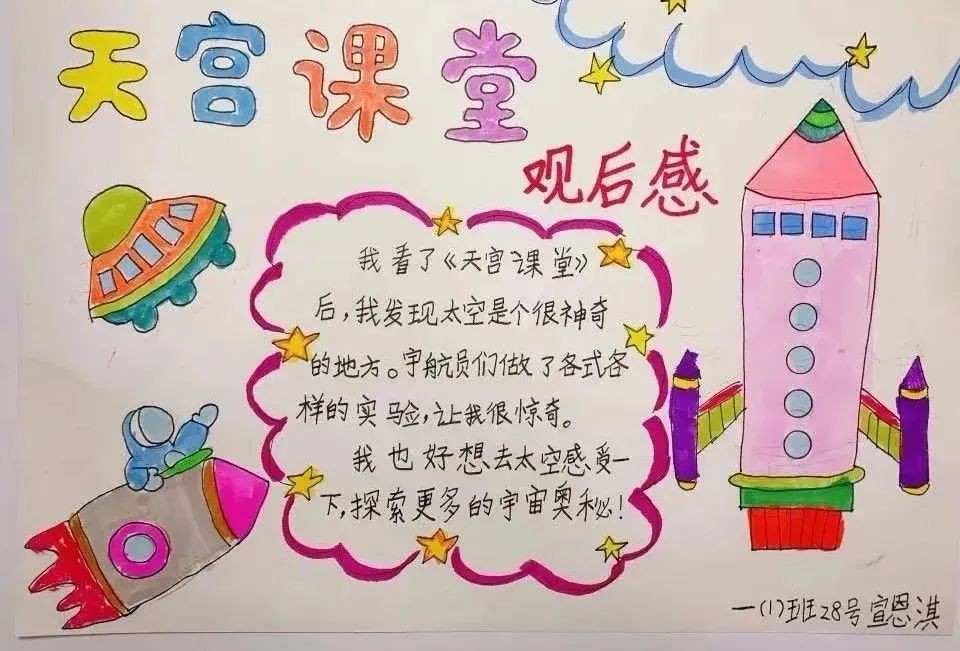 天宫课堂
观后感
我看了《天宫课堂》
后，我发现太空是个很神奇
的地方。宇航员们做了各式各
样的实验，让我很惊奇。
我也好想去太空感受一
下，探索更多的宇宙奥秘！
一(1)班28号宣恩淇